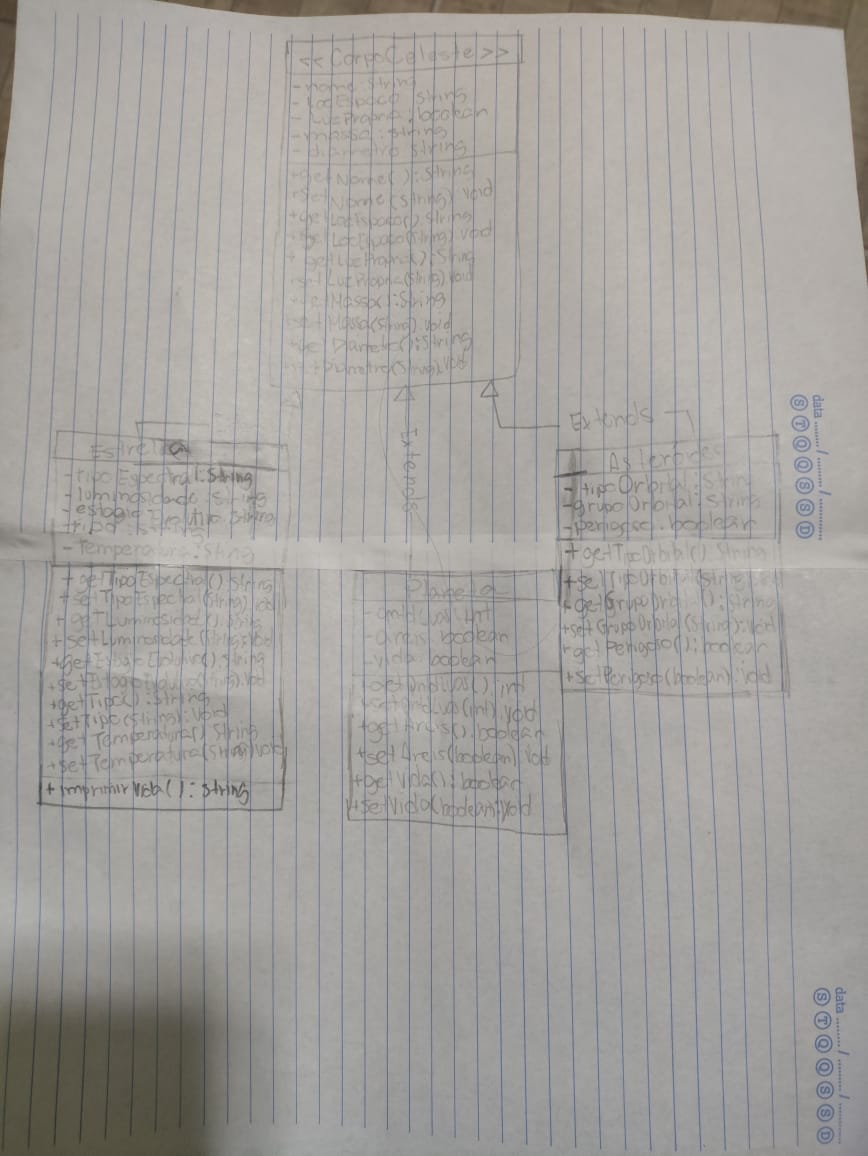 <<CorpoCeleste>>
- nome: String
- LocEspaco: String
- LuzPropria: boolean
- massa: string
- diametro: string
+getNome(): String
+setNome(string) void
+getLocEspaco(): String
+setLocEspaco(String): void
+getLuzPropria(): String
+setLuzPropria(String): void
+getMassa(): String
+setMassa(string): void
+get Diametro(): String
+setDiametro(String): void
Extends
Extends
Estrela
- tipoEspectral: String
- luminosidade: String
- estagio: String
- tipo: String
- Temperatura: String
+ getTipoEspectral(): String
+ setTipoEspectral(String): void
+ getLuminosidade(): String
+ setLuminosidade(String): void
+getEstagio (): String
+setEstagio (String): void
+getTipo(): String
+setTipo(String): Void
+get Temperatura(): String
+setTemperatura(String): void
+imprimirVida(): string
Planeta
- qntdLuas: int
- aneis: boolean
- vida: boolean
+getqntdLuas(): int
+setqntdLuas(int): void
+getAneis(): boolean
+setAneis(boolean): void
+getVida(): boolean
+setVida(boolean): void
Asteroides
- tipoOrbital: String
-grupoOrbital: String
-perigoso: boolean
+getTipoOrbital(): String
+setTipoOrbital(String): void
+getGrupoOrbital(): String
+setGrupoOrbital(String): void
+getPerigoso(): boolean
+setPerigoso(boolean): void
data ......../......../........
S T Q Q S S D
data ......../......../........
S T Q Q S S D